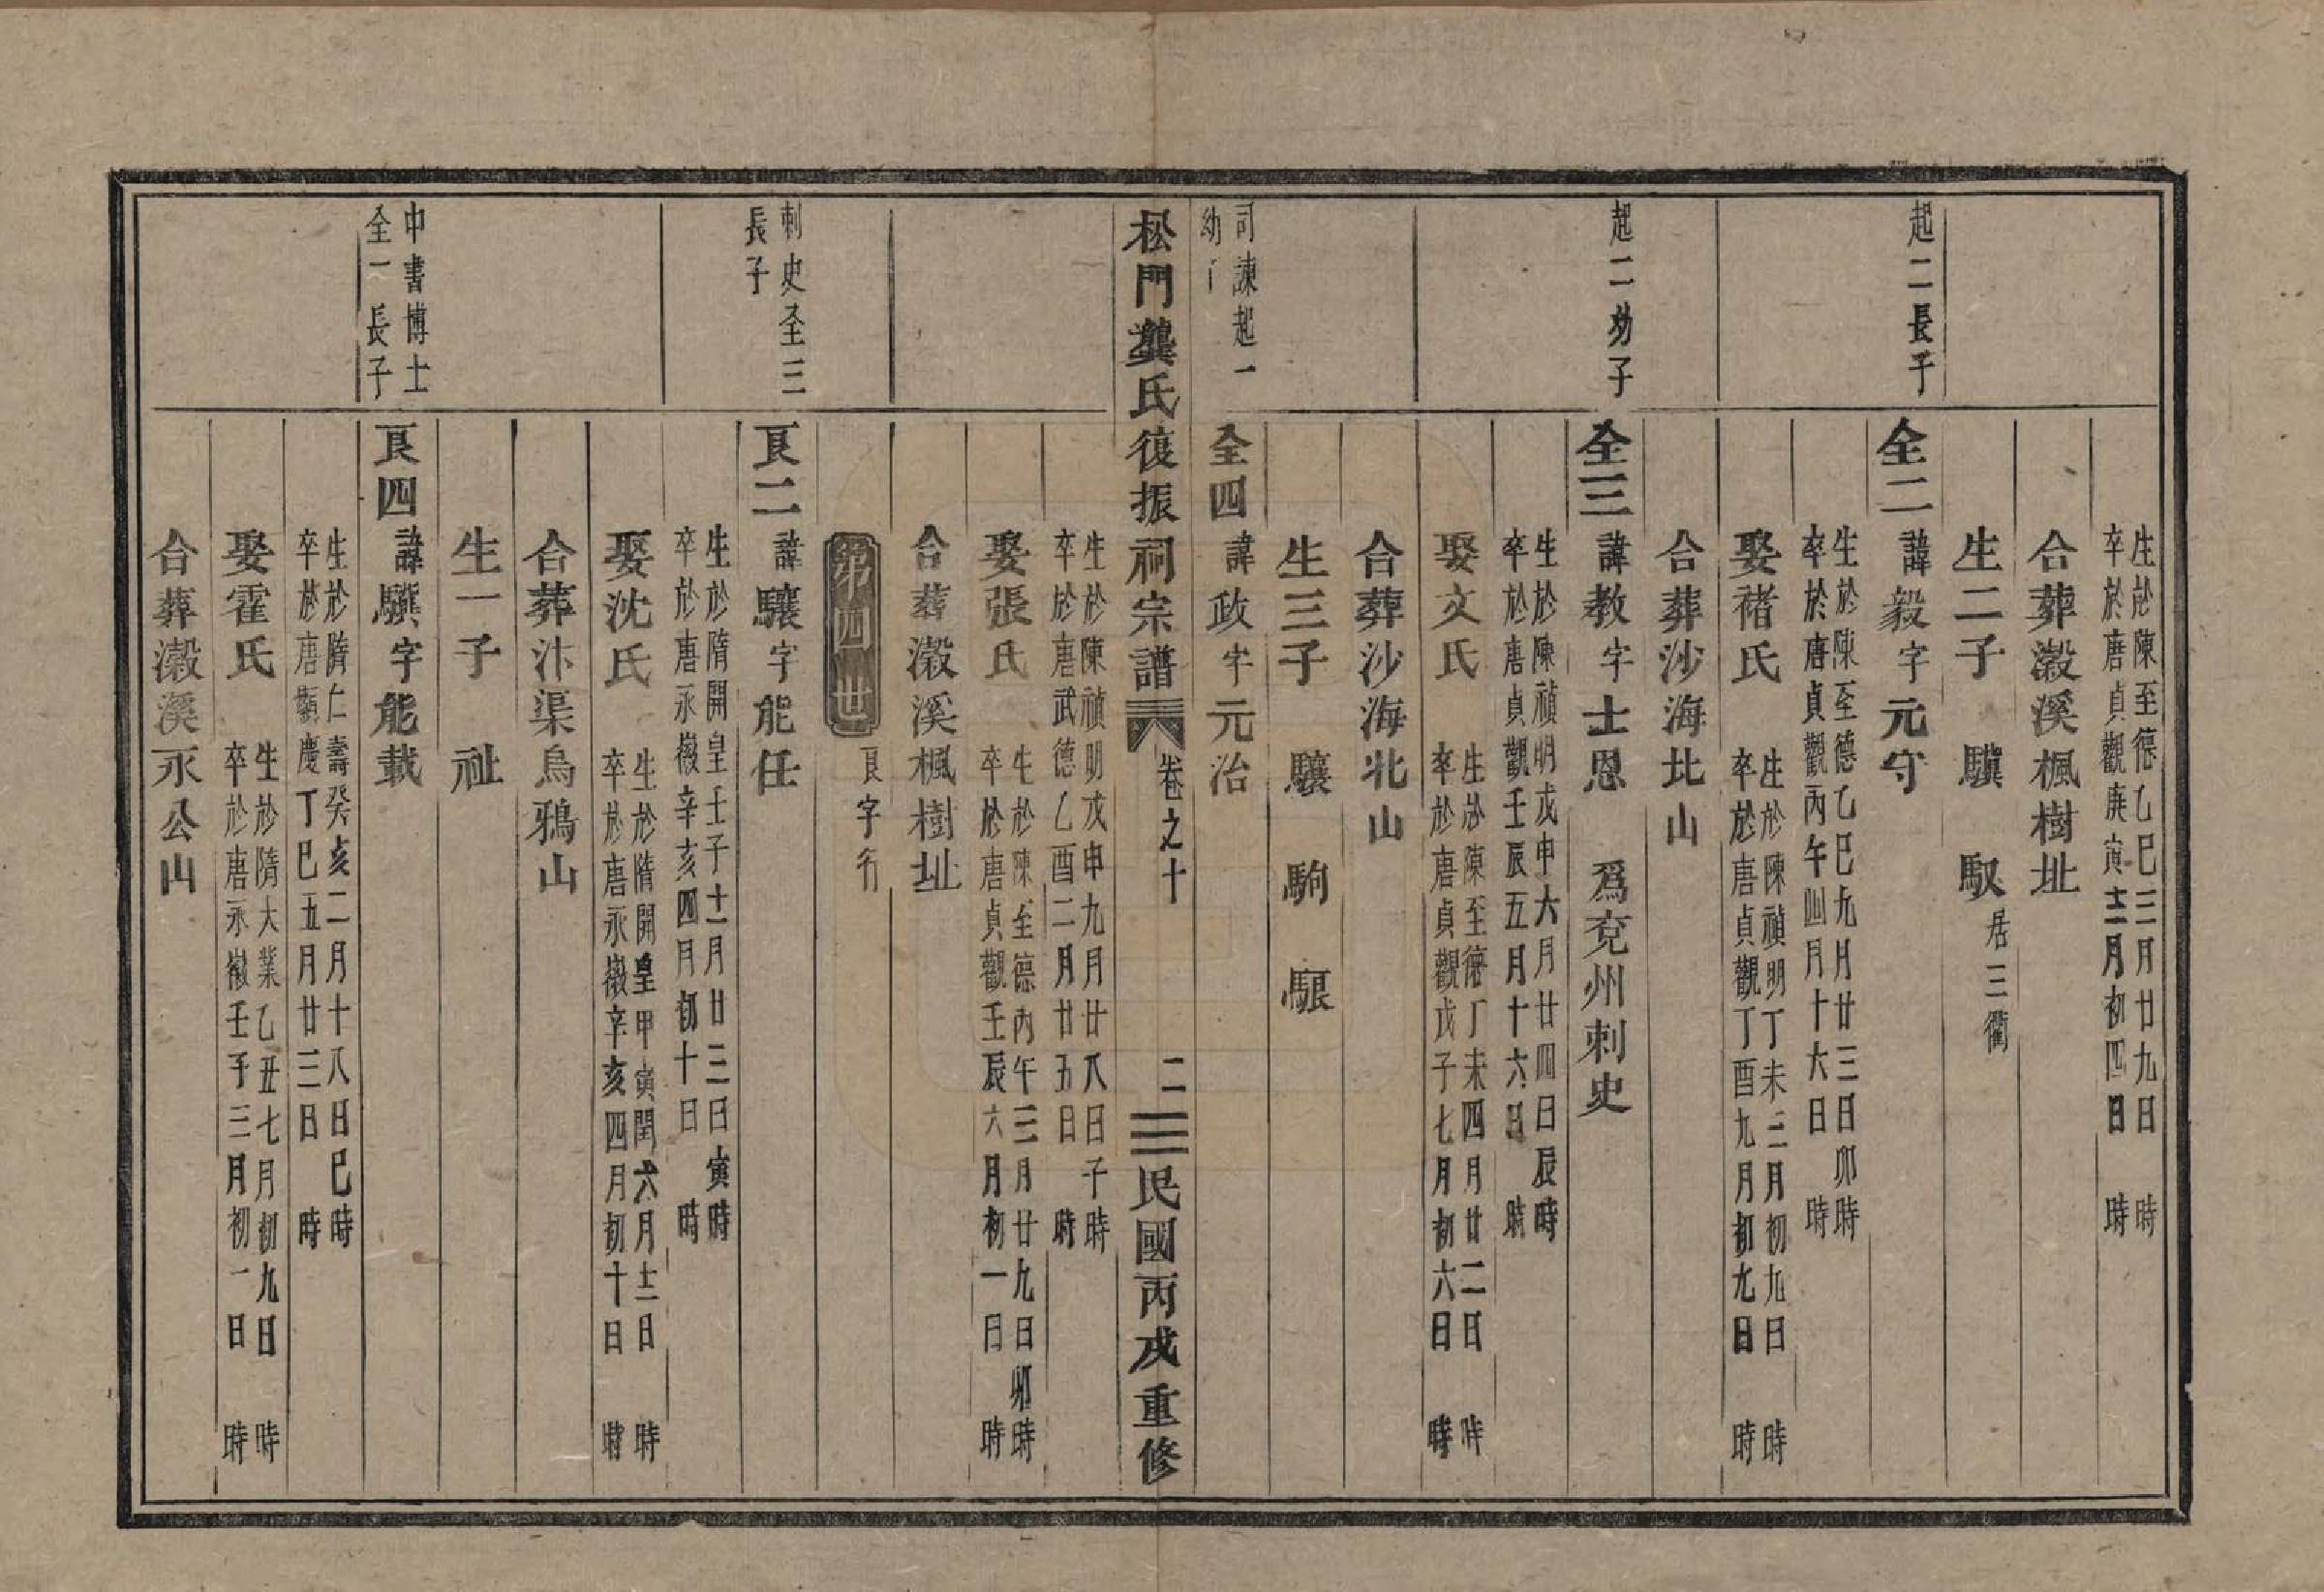 生於陳至德乙巳三月廿九日 時
卒於唐貞觀庚寅十二月初四日 時
合葬瀔溪楓樹址
生二子 驥 馭 居三衢
起二長子
全二 諱毅字元守
生於陳至德乙巳九月廿三日卯時
卒於唐貞觀丙午四月十六日 時
娶褚氏
生於陳禎明丁未三月初九日 時
卒於唐貞觀丁酉九月初九日 時
合葬沙海北山
起二幼子
全三 諱教字士恩 爲兗州刺史
生於陳禎明戊申六月廿四日辰時
卒於唐貞觀壬辰五月十六日 時
娶文氏
生於陳至德丁未四月廿二日 時
卒於唐貞觀戊子七月初六日 時
合葬沙海北山
生三子 驤 駒 騡
司諫起一
幼子
全四 諱政字元治
松門龔氏復振祠宗譜 卷之十 二 民國丙戌重修
生於陳禎明戊申九月廿八日子時
卒於唐武德乙酉二月廿五日 時
娶張氏
生於陳至德丙午三月廿九日卯時
卒於唐貞觀壬辰六月初一日 時
合葬瀔溪楓樹址
第四世 艮字行
刺史全三
長子
艮二 諱驤字能任
生於隋開皇壬子十一月廿三日寅時
卒於唐永徽辛亥四月初十日 時
娶沈氏
生於隋開皇甲寅閏六月十二日 時
卒於唐永徽辛亥四月初十日 時
合葬汴渠烏鴉山
生一子 祉
中書博士
全一長子
艮四 諱驥字能載
生於隋仁壽癸亥二月十八日巳時
卒於唐顯慶丁巳五月廿三日 時
娶霍氏
生於隋大業乙丑七月初九日 時
卒於唐永徽壬子三月初一日 時
合葬瀔溪永公山